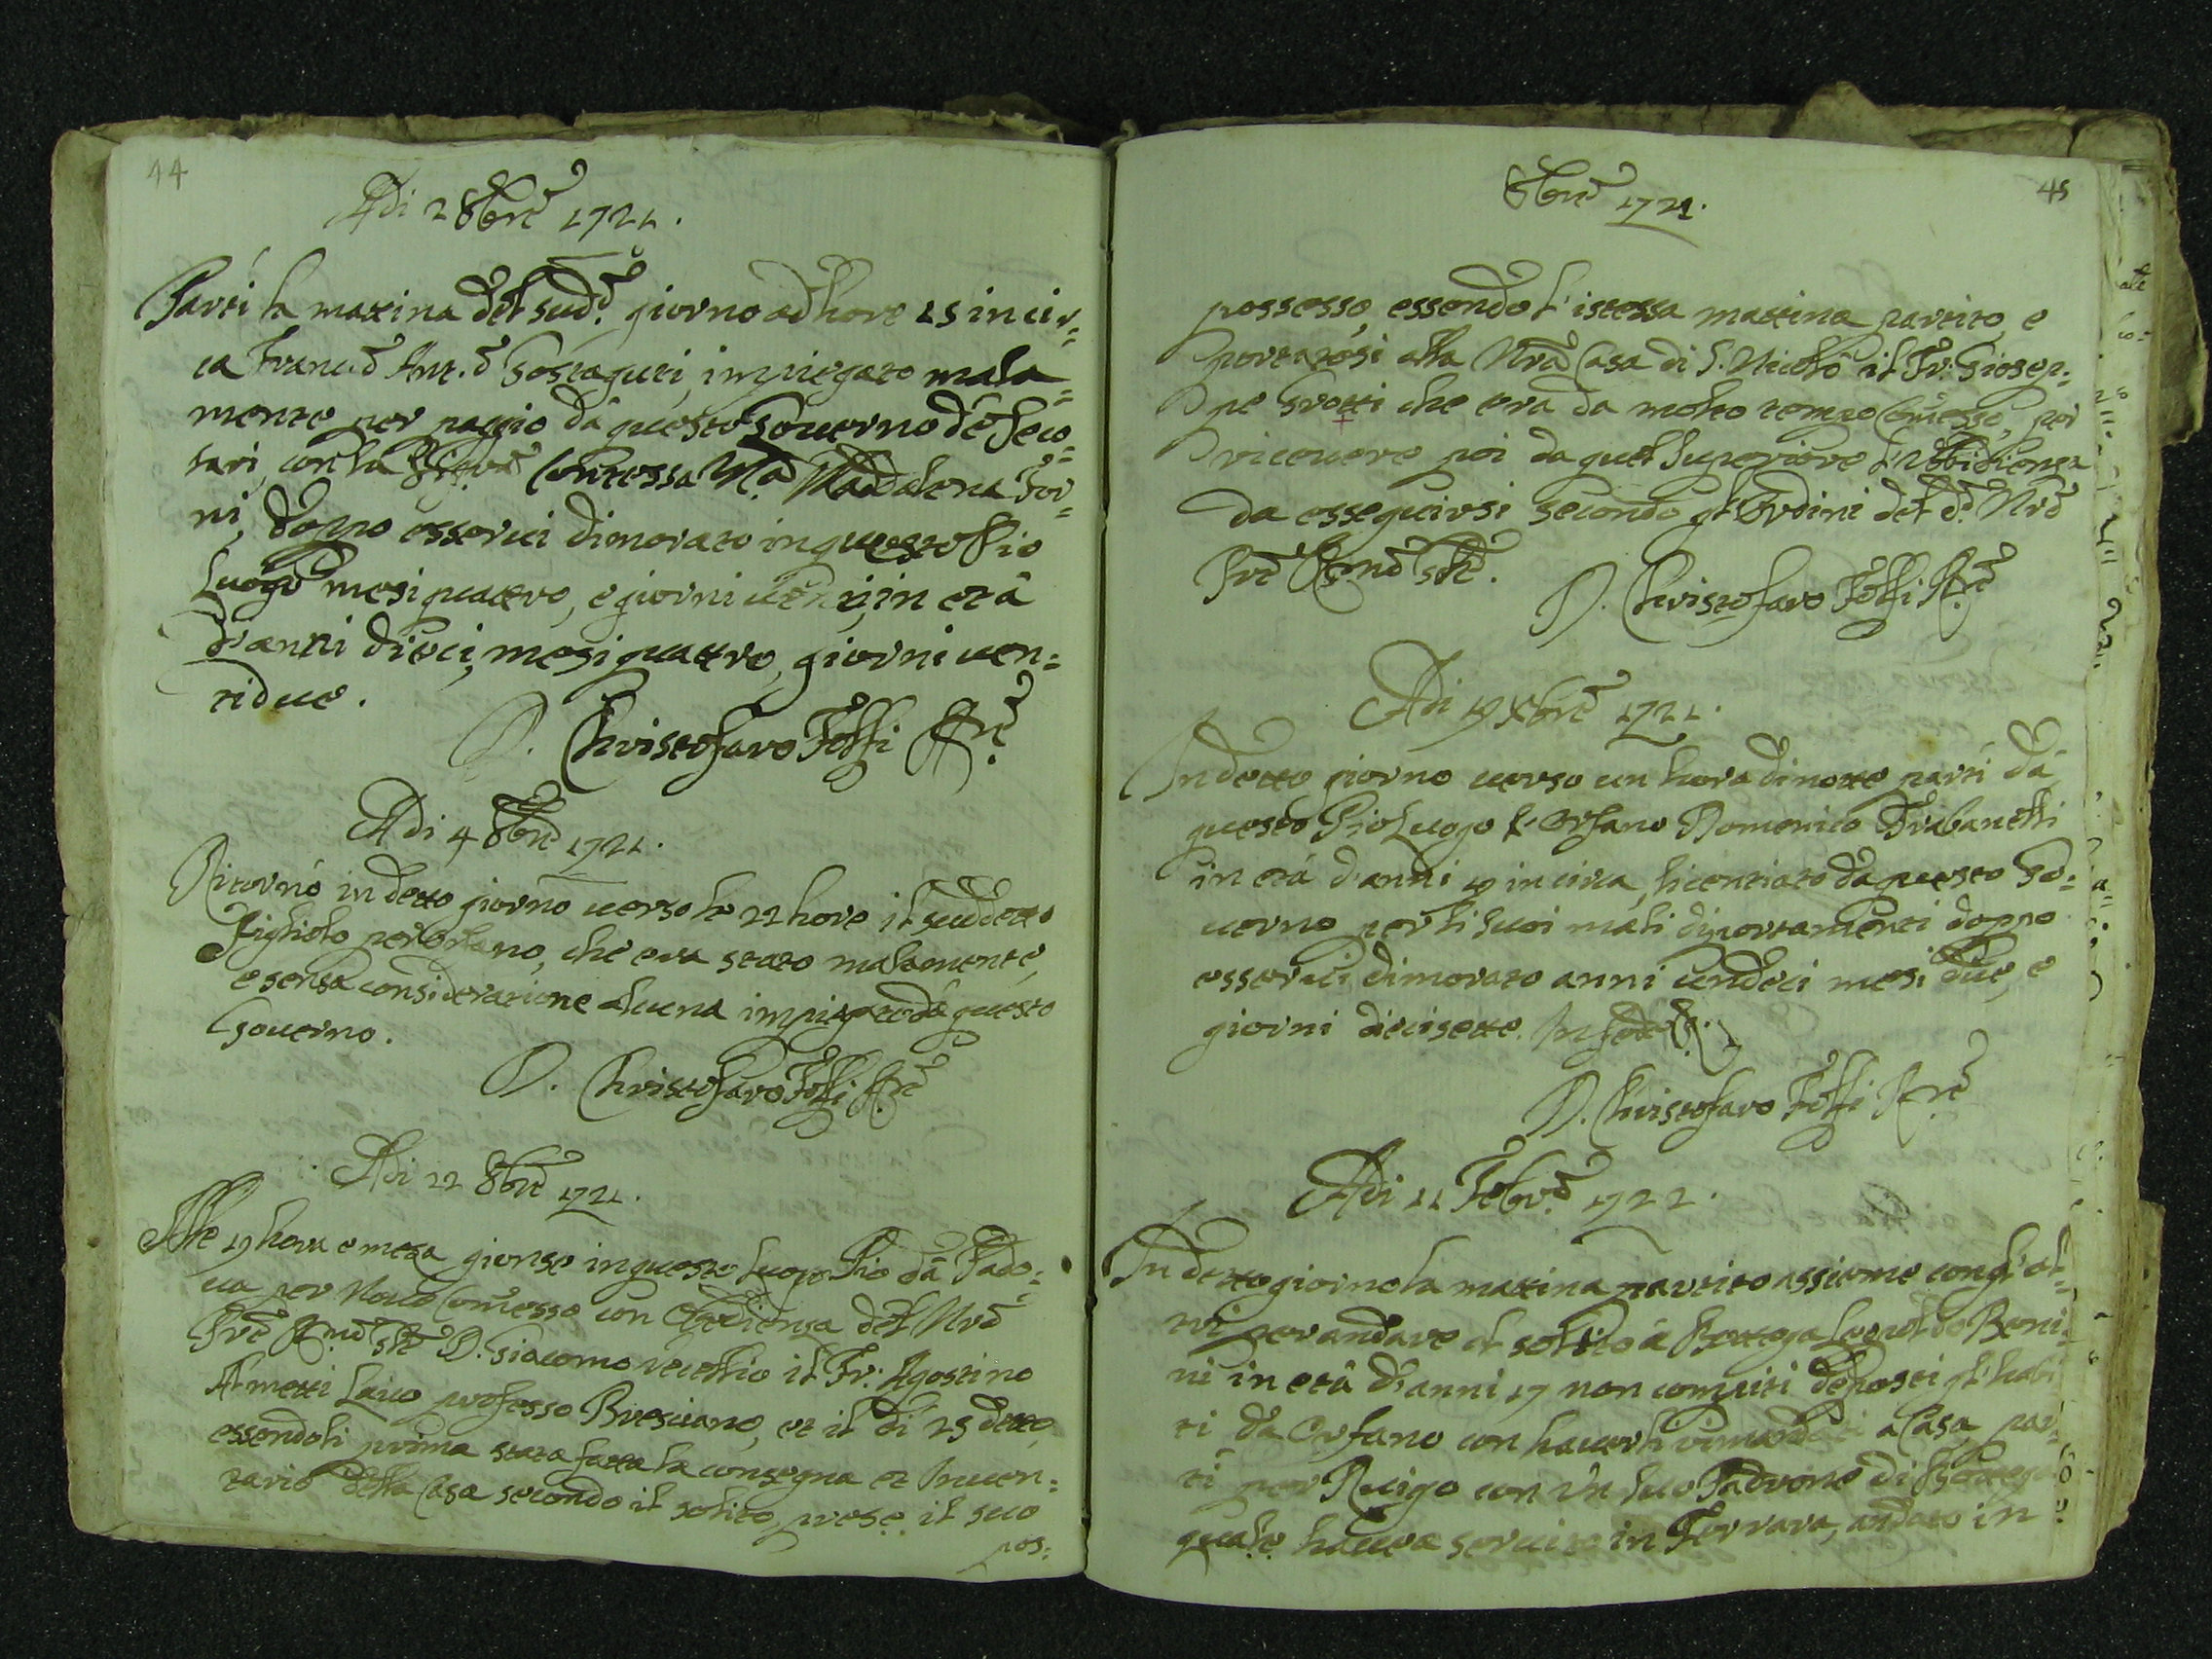 44
Adi 2 8bre 1721.
Partì la mattina del sud.º giorno ad hore 15 in cir=
ca Franc.º Ant.º Gostaguti, impiegato mala=
mente per paggio dà questo Governo dè Seco=
lari, con la Contessa M.ª Maddalena For=
ni, doppo esserci dimorato in questo Pio
Luogo mesi quattro, e giorni in età
d'anni dieci, mesi quattro, giorni ven=
tidue.
D. Christofaro Folli Rre
Adi 4 8bre 1721.
Ritornò in detto giorno verso le 22 hore il suddetto
Figliolo per Orfano, che era stato malamente,
e senza considerazione alcuna impiegato dà questo
Governo.
D. Christofaro Folli Rre
Adi 22 8bre 1721.
Alle 19 hora e meza gionse in questo Luogo Pio dà Pado=
va per Novo Comesso con Obbedienza del Nrõ
Prẽ Rmo D. Giacomo Vecellio il Fr: Agostino
Almetti Laico professo Bresciano, et il di 25 detto,
essendoli prima stata fatta la consegna et Inven=
tario della Casa secondo il solito, prese il suo
pos:
8bre 1721.
45
possesso, essendo l'istessa mattina partito, e
portatosi alla Nrã Casa di S. Nicolò il Fr: Giosep=
pe Grotti che era da molto tempo Comesso, per
ricevere poi da quel Superiore l'Ubbidienza
da esseguirsi secondo gl'Ordini del dº Nrõ
Prẽ Rmo
D. Christofaro Folli Rre
Adi 19 Xbre 1721.
In detto giorno verso un hora di notte partì dà
questo Pio Luogo l'Orfano Domenico Trabanelli
in età d'anni 19 in circa, licentiato da questo Go=
verno per li suoi mali diportamenti doppo
esserci dimorato anni undeci mesi due, e
giorni diecisette. In fede
D. Christofaro Folli Rre
Adi 11 Febrº 1722.
In detto giorno la mattina partito assieme con gl'al=
tri per andare al solito à Bottega Leopoldo Beni=
ni in età d'anni 17 non compiti deposti gl'habi
ti da Orfano con haverli rimandati a Casa par=
tì per Ruigo con Un suo Padrone di Bottega
quale haveva servito in Ferrara, andato in